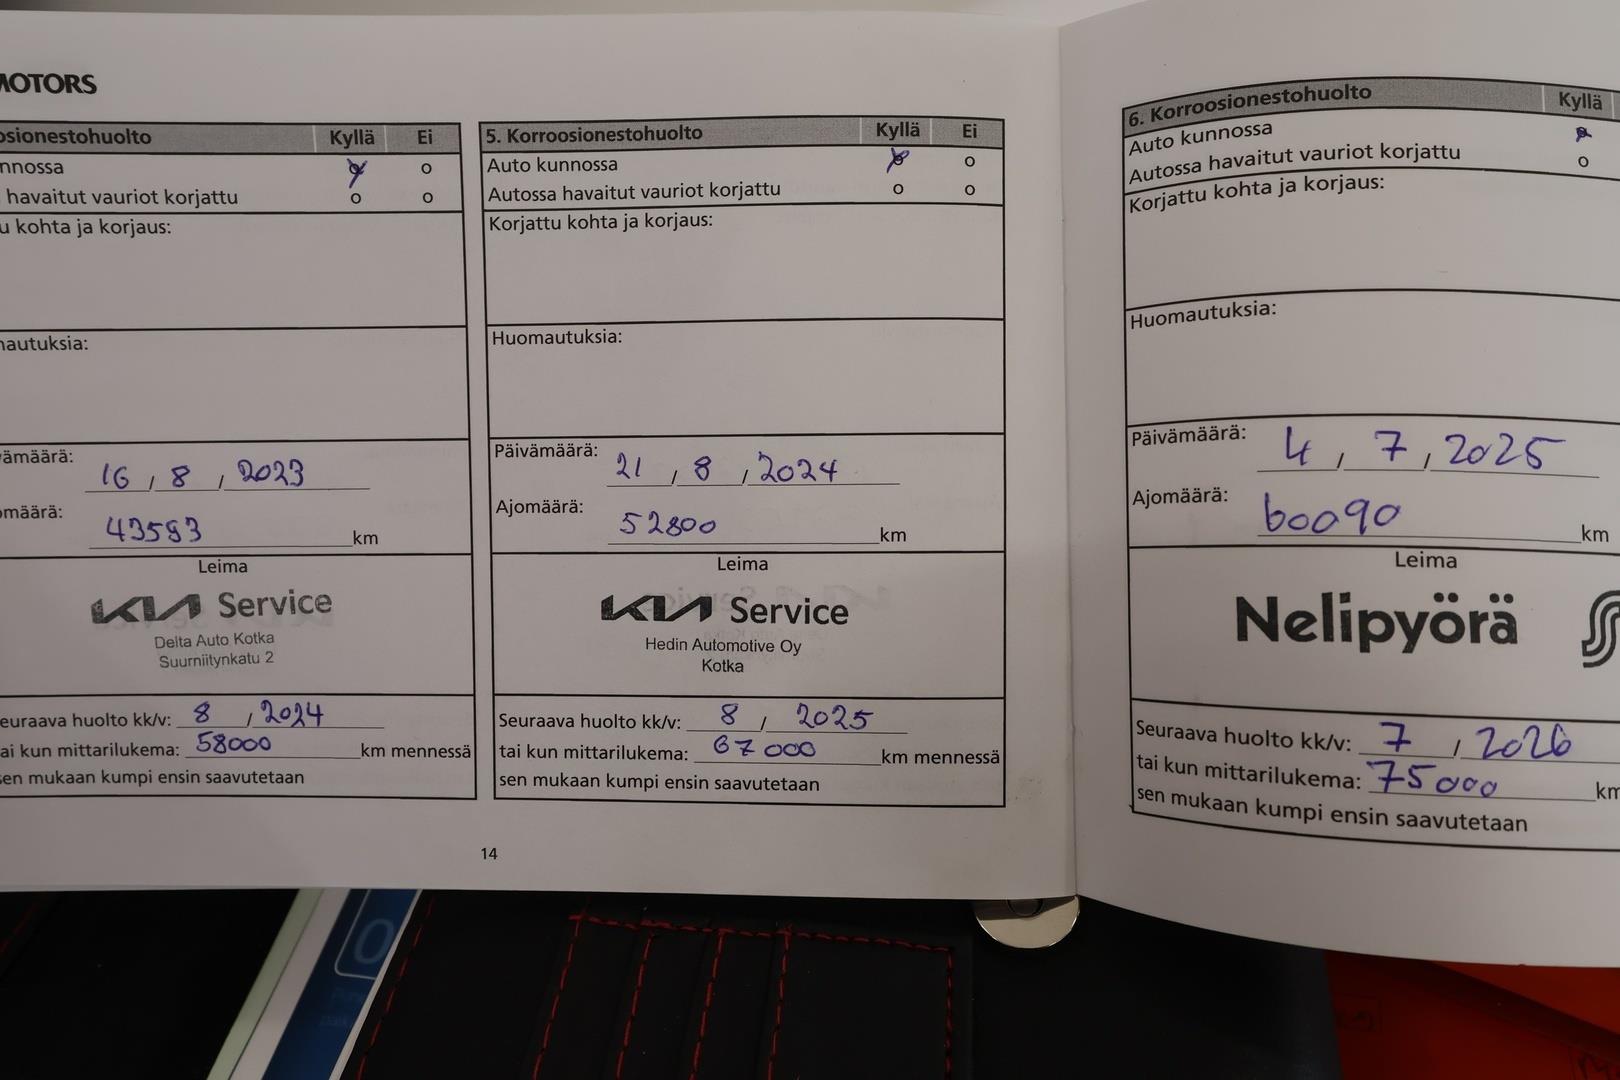 MOTORS
osionestohuolto Kyllä Ei
nnossa o o
havaitut vauriot korjattu o o
u kohta ja korjaus:
nautuksia:
vämäärä: 16 / 8 / 2023
omäärä: 43593 km
Leima
KIA Service
Delta Auto Kotka
Suurniitynkatu 2
euraava huolto kk/v: 8 / 2024
tai kun mittarilukema: 58000 km mennessä
sen mukaan kumpi ensin saavutetaan
5. Korroosionestohuolto Kyllä Ei
Auto kunnossa o o
Autossa havaitut vauriot korjattu o o
Korjattu kohta ja korjaus:
Huomautuksia:
Päivämäärä: 21 / 8 / 2024
Ajomäärä: 52800 km
Leima
KIA Service
Hedin Automotive Oy
Kotka
Seuraava huolto kk/v: 8 / 2025
tai kun mittarilukema: 67000 km mennessä
sen mukaan kumpi ensin saavutetaan
14
6. Korroosionestohuolto Kyllä
Auto kunnossa o
Autossa havaitut vauriot korjattu o
Korjattu kohta ja korjaus:
Huomautuksia:
Päivämäärä: 4 / 7 / 2025
Ajomäärä: 60090 km
Leima
Nelipyörä
Seuraava huolto kk/v: 7 / 2026
tai kun mittarilukema: 75000 km
sen mukaan kumpi ensin saavutetaan